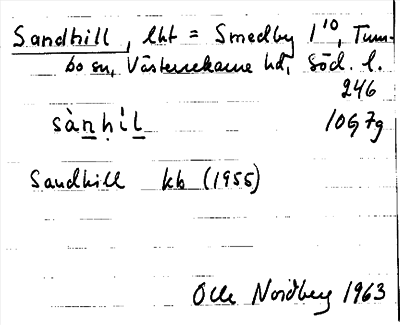 Sandhill, lht = Smedby 1¹⁰, Tum-
bo sn, Västerrekarne hd, Söd. l.
246
sànhìl 10G7g
Sandhill kb (1955)
Olle Nordberg 1963